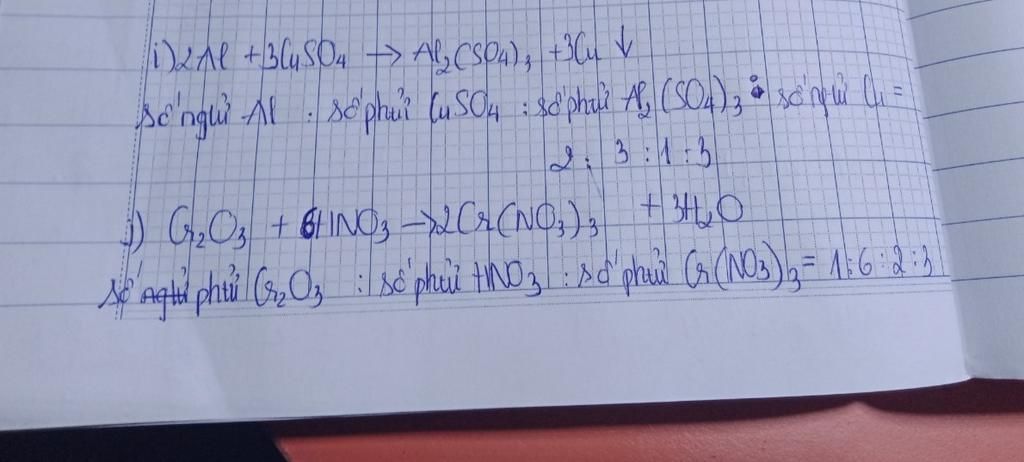 i) 2Al + 3CuSO4 → Al2(SO4)3 + 3Cu ↓
số ngtử Al : số phtử CuSO4 : số phtử Al2(SO4)3 : số ngtử Cu =
2 : 3 : 1 : 3
j) Cr2O3 + 6HNO3 → 2Cr(NO3)3 + 3H2O
số phtử Cr2O3 : số phtử HNO3 : số phtử Cr(NO3)3 = 1 : 6 : 2 : 3